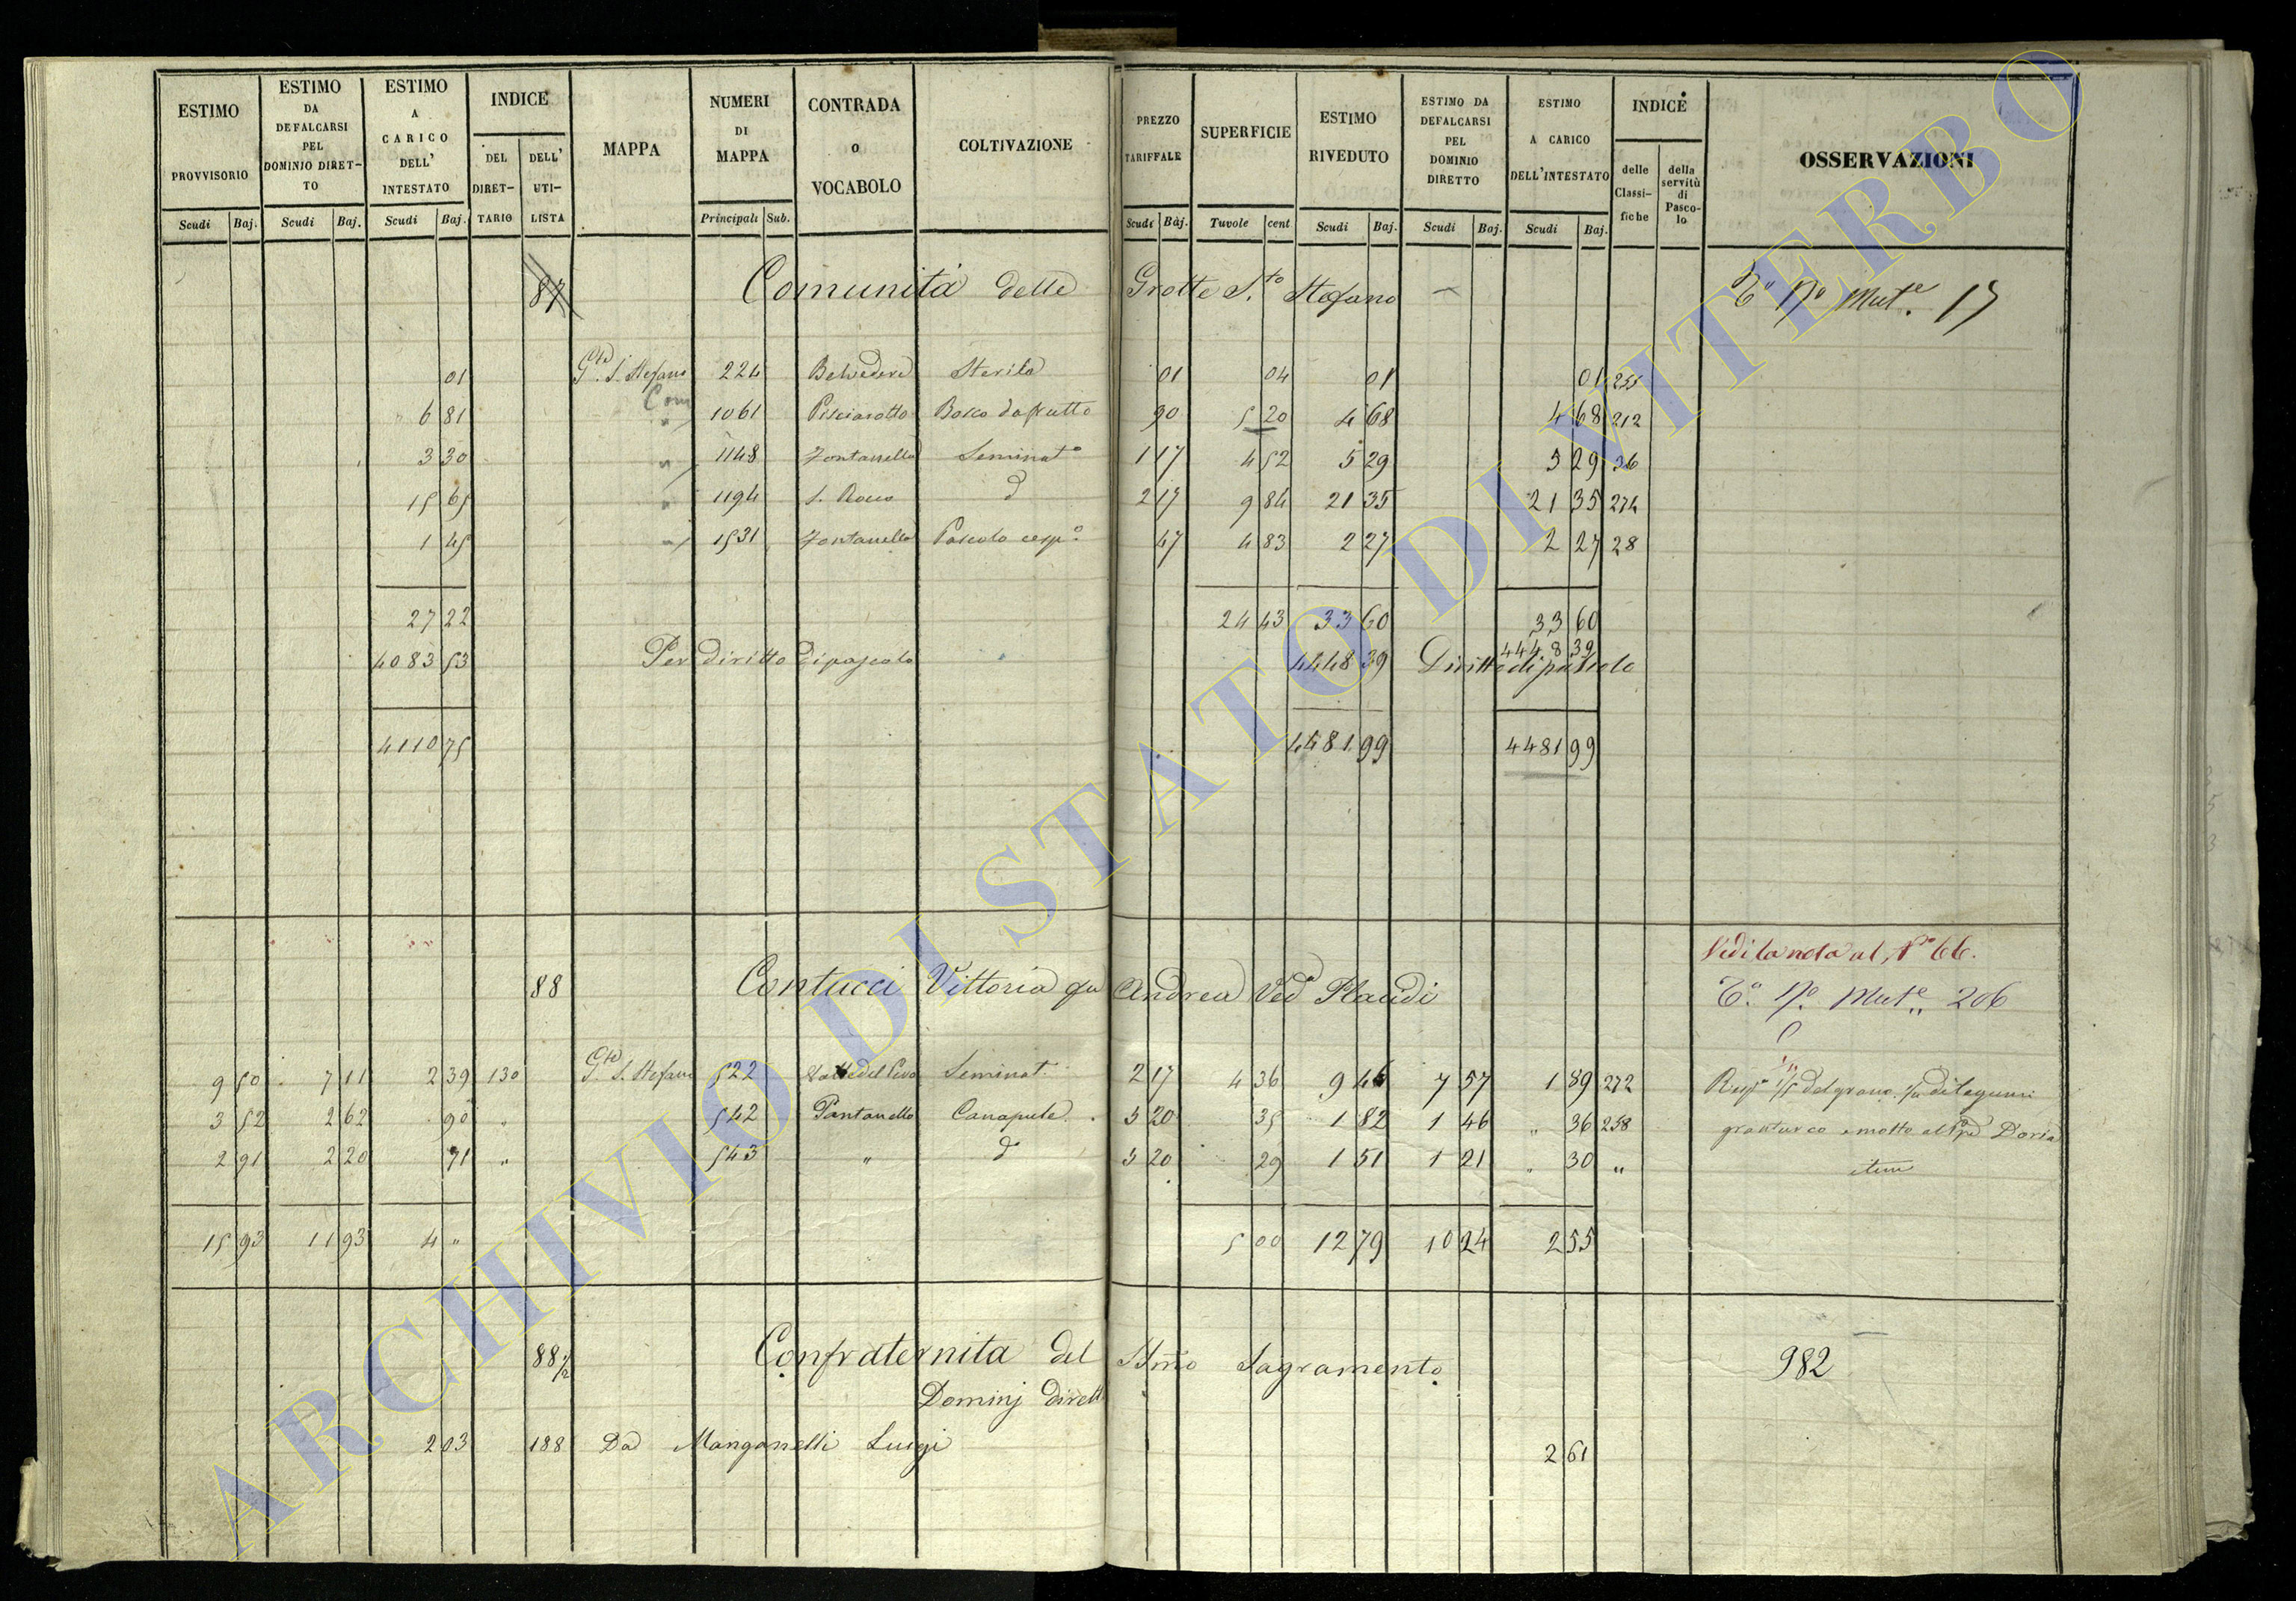 ESTIMO PROVVISORIO Scudi Baj.
ESTIMO DA DEFALCARSI PEL DOMINIO DIRET-TO Scudi Baj.
ESTIMO A CARICO DELL' INTESTATO Scudi Baj.
INDICE DEL DIRET-TARIO DELL' UTI-LISTA
MAPPA
NUMERI DI MAPPA Principali Sub.
CONTRADA o VOCABOLO
COLTIVAZIONE
PREZZO TARIFFALE Scudi Baj.
SUPERFICIE Tavole cent
ESTIMO RIVEDUTO Scudi Baj.
ESTIMO DA DEFALCARSI PEL DOMINIO DIRETTO Scudi Baj.
ESTIMO A CARICO DELL'INTESTATO Scudi Baj.
INDICE delle Classi-fiche della servitù di Pasco-lo
OSSERVAZIONI
87 Comunità delle Grotte S.to Stefano Mut.e 17
01 Gtte S. Stefano 224 Belvedere Sterile 01 04 01 01 255
Com
6 81 " 1061 Pisciarotto Bosco da frutto 90 5 20 4 68 4 68 212
3 30 " 1148 Fontanella Seminat.o 1 17 4 52 5 29 5 29 36
15 65 " 1194 S. Rocco d 2 17 9 84 21 35 21 35 274
1 45 " 1531 Fontanella Pascolo cesp.o 47 4 83 2 27 2 27 28
27 22 24 43 33 60 33 60
4083 53 Per diritto di pascolo 4448 39 Diritto di pascolo 4448 39
4110 75 4481 99 4481 99
Vedi la nota al N.o 66.
88 Contucci Vittoria qu Andrea Ved.a Plaudi Mut.e 206
9 50 7 11 2 39 130 Gtte S. Stefano 522 Seminat. 2 17 4 36 9 46 7 57 1 89 272 1/5 del grano di legumi
3 52 2 62 90 " 542 Pantanello Canapule 5 20 35 1 82 1 46 " 36 258 granturco Doria
2 91 2 20 71 " 543 " d 5 20 29 1 51 1 21 " 30 " item
15 93 11 93 4 " 5 00 12 79 10 24 2 55
88 1/2 Confraternita del SSmo Sagramento 982
Dominj diretti
2 03 188 Da Manganelli Luigi 2 61
ARCHIVIO DI STATO DI VITERBO